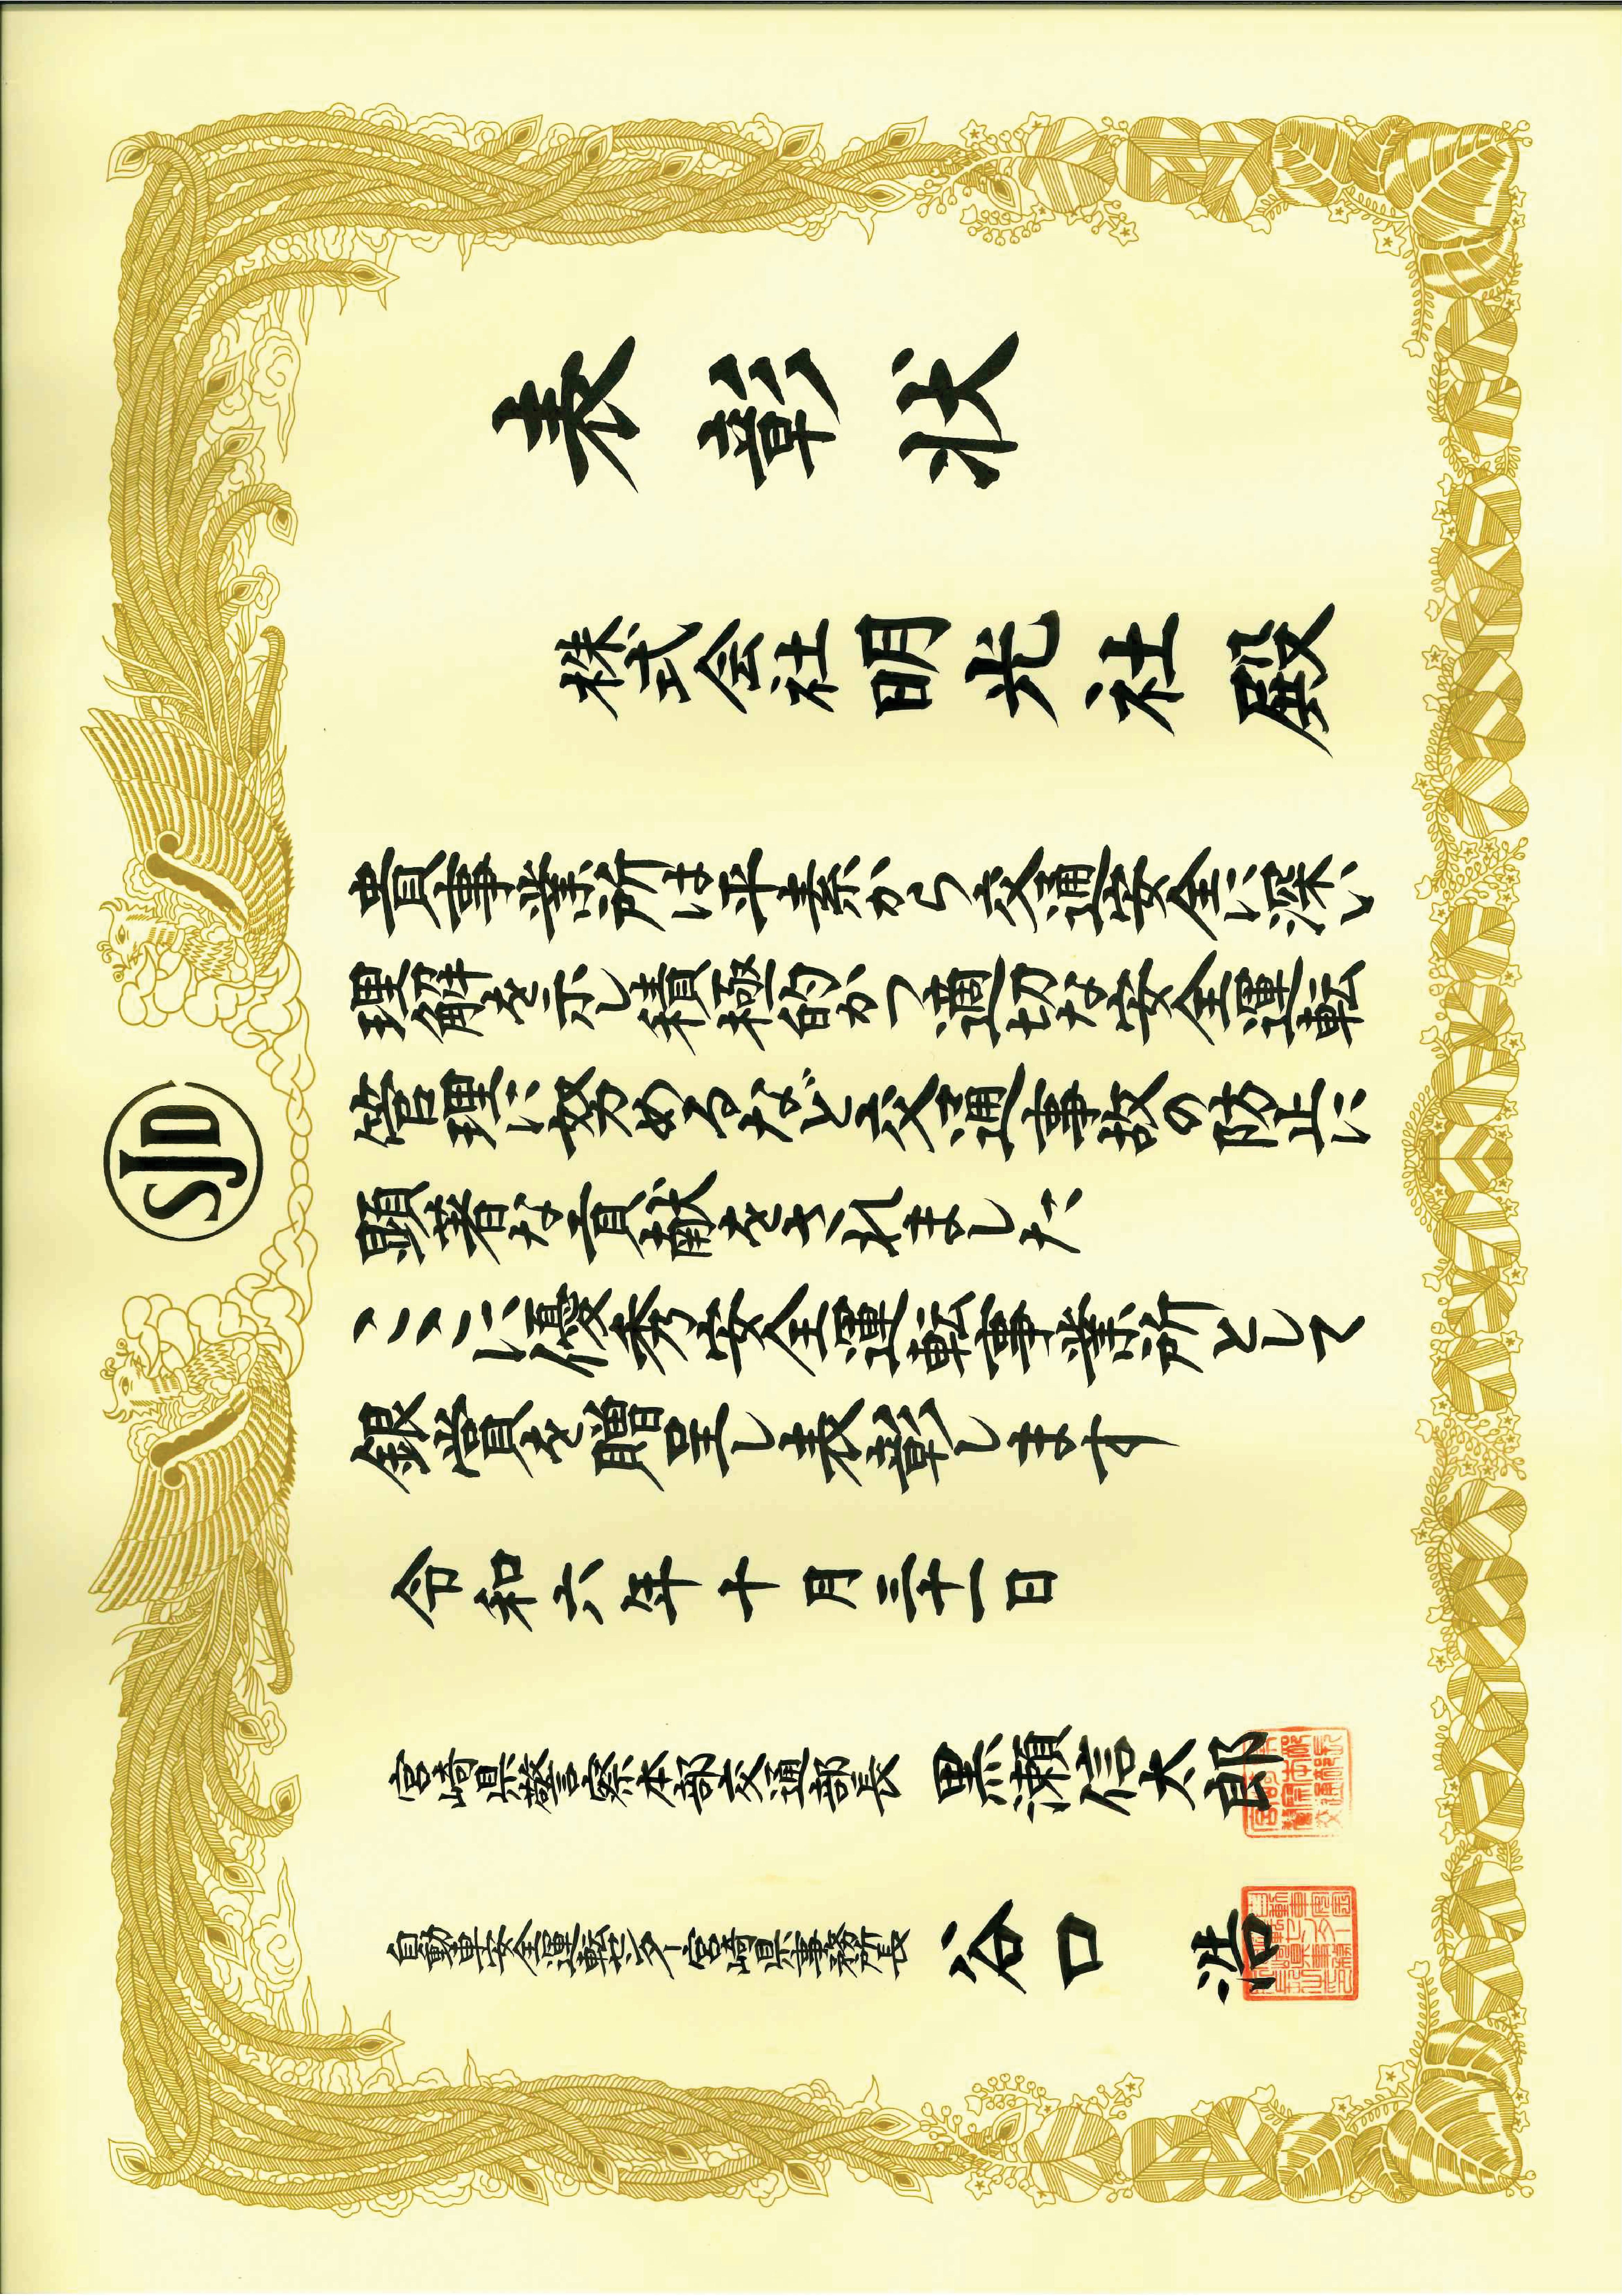 SJD
表彰状
株式会社明光社殿
貴事業所は平素から交通安全に深い
理解を示し積極的かつ適切な安全運転
管理に努めるなど交通事故の防止に
顕著な貢献をされました
ここに優秀安全運転事業所として
銀賞を贈呈し表彰します
令和六年十月三十一日
宮崎県警察本部交通部長 黒瀬信太郎
自動車安全運転センター宮崎県事務所長 谷口浩